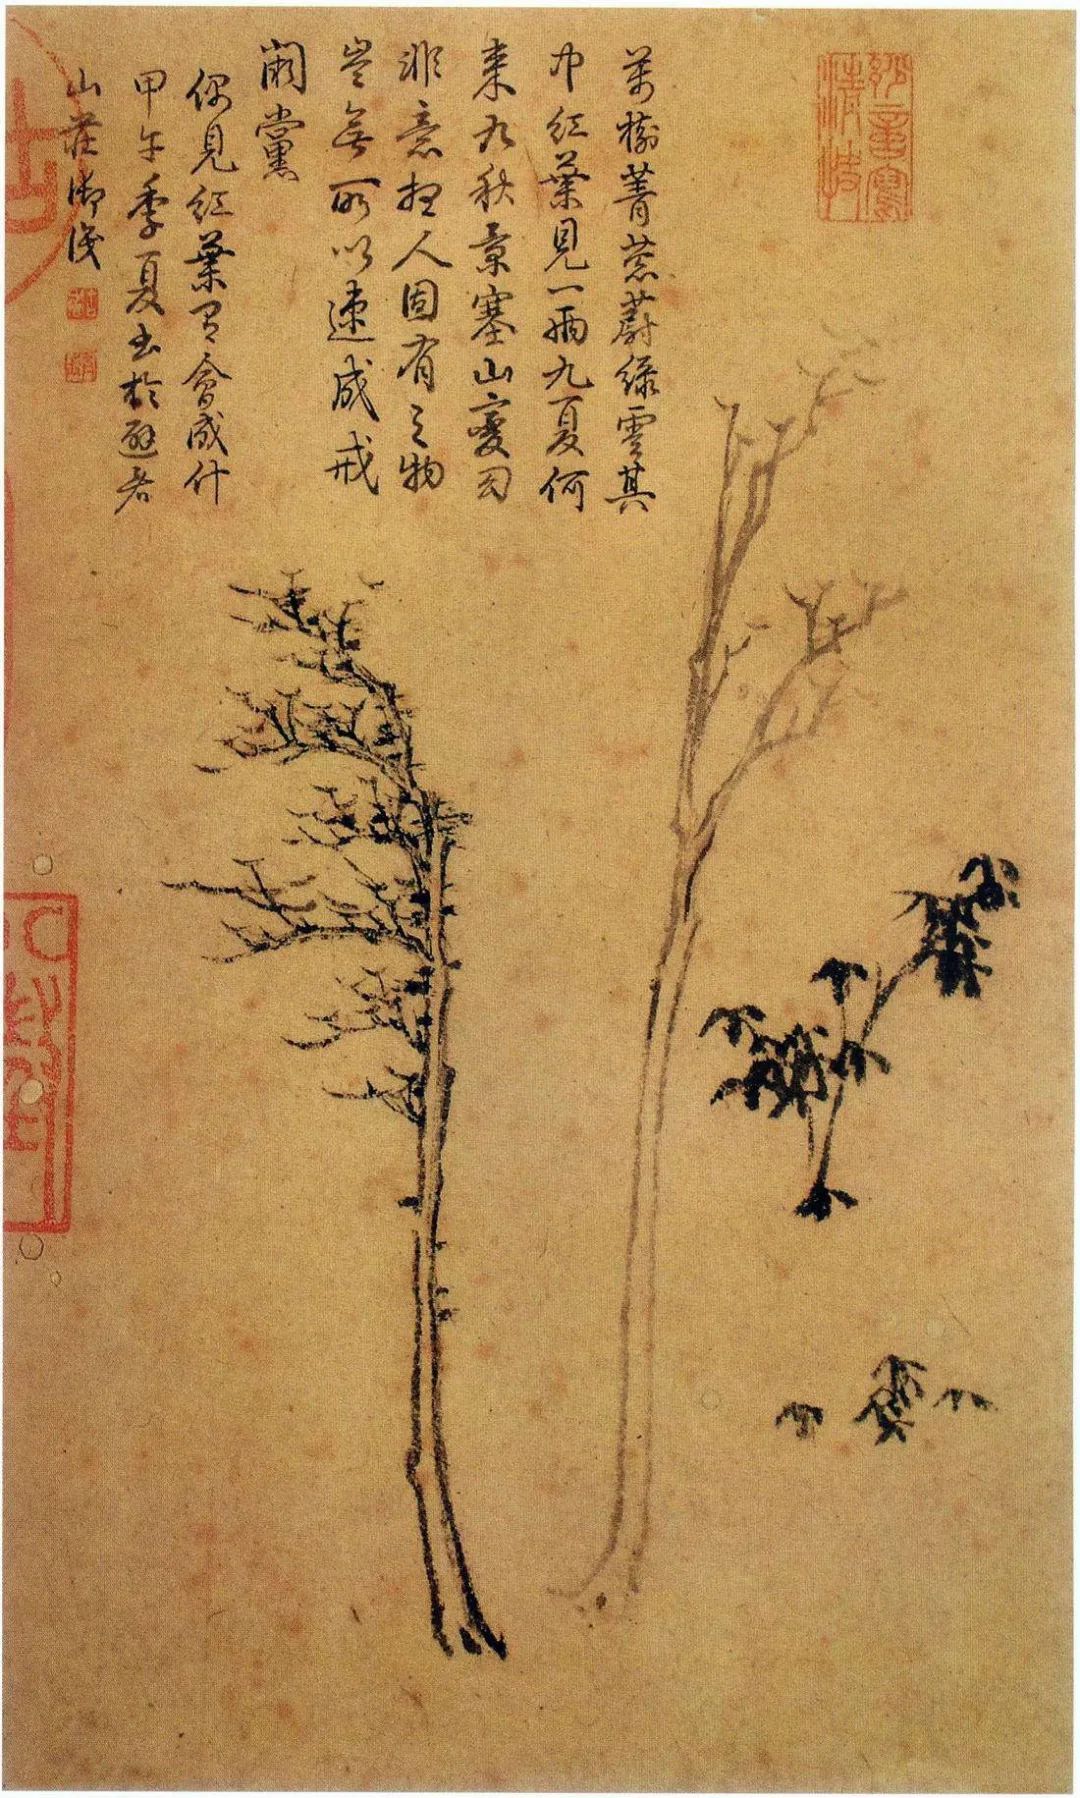 萬樹菁葱蔚綠雲其
中紅葉見一兩九夏何
來九秋景塞山變幻
非意想人固有之物
豈無所以速成戒
闒黨
偶見紅葉有會成什
甲午季夏書於避暑
山莊御識